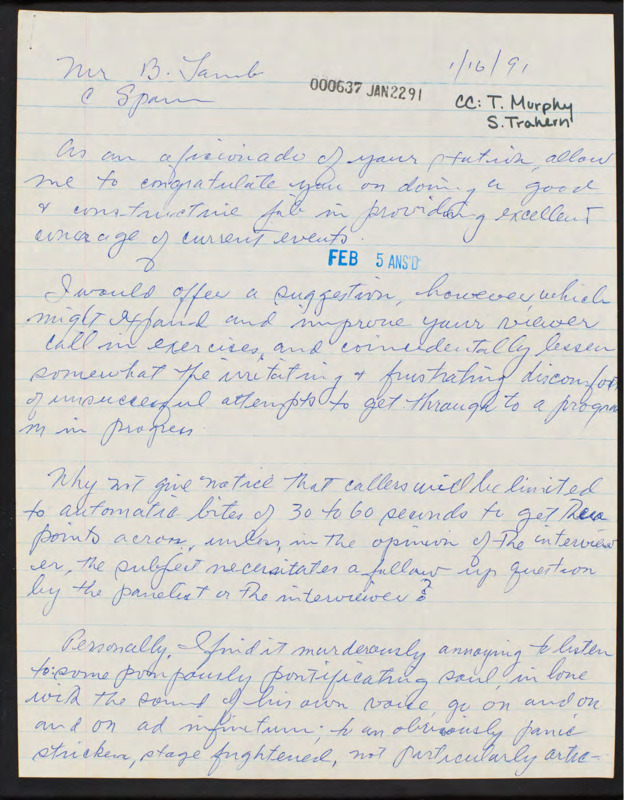 Mr B. Lamb
1/16/91
C Span
000637 JAN2291
CC: T. Murphy
S. Trahern
As an aficionado of your station, allow
me to congratulate you on doing a good
& constructive job in providing excellent
coverage of current events.
FEB 5 ANS'D
I would offer a suggestion, however, which
might expand and improve your viewer
call in exercises, and coincidentally lessen
somewhat the irritating & frustrating discomfort
of unsuccessful attempts to get through to a progra
m in progress.
Why not give notice that callers will be limited
to automatic bites of 30 to 60 seconds to get their
points across, unless, in the opinion of the interview
er, the subject necessitates a follow up question
by the panelist or the interviewer?
Personally, I find it murderously annoying to listen
to some pompously pontificating soul, in love
with the sound of his own voice, go on and on
and on ad infinitum; to an obviously panic
stricken, stage frightened, not particularly artic-